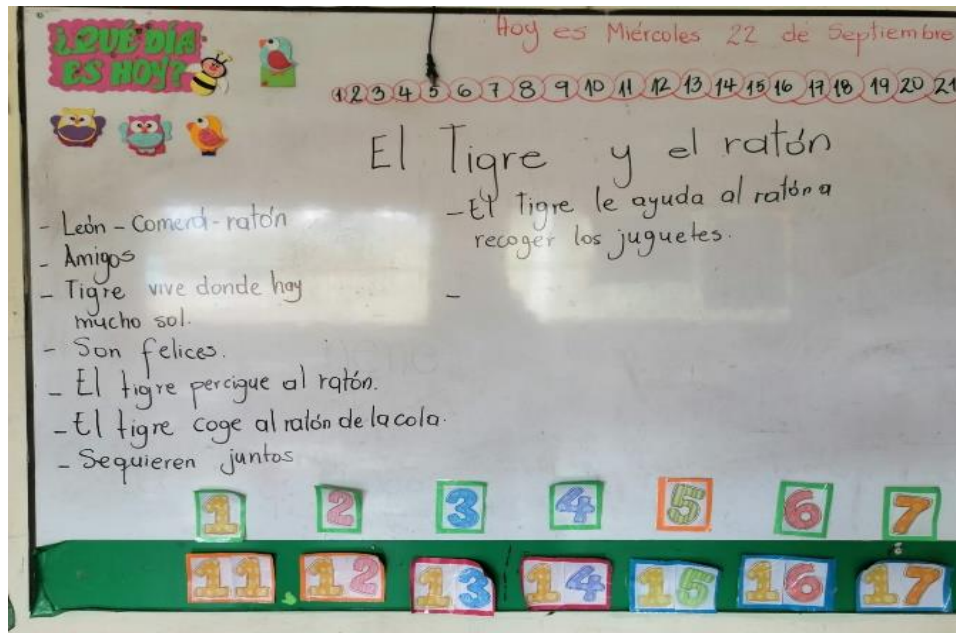 ¿QUÉ DÍA
ES HOY?
Hoy es Miércoles 22 de Septiembre
1 2 3 4 5 6 7 8 9 10 11 12 13 14 15 16 17 18 19 20 21
El Tigre y el ratón
- León - Comerá - ratón
- Amigos
- Tigre vive donde hay
mucho sol.
- Son felices.
- El tigre percigue al ratón.
- El tigre coge al ratón de la cola.
- Sequieren juntos
- El Tigre le ayuda al ratón a
recoger los juguetes.
-
1 2 3 4 5 6 7
11 12 13 14 15 16 17